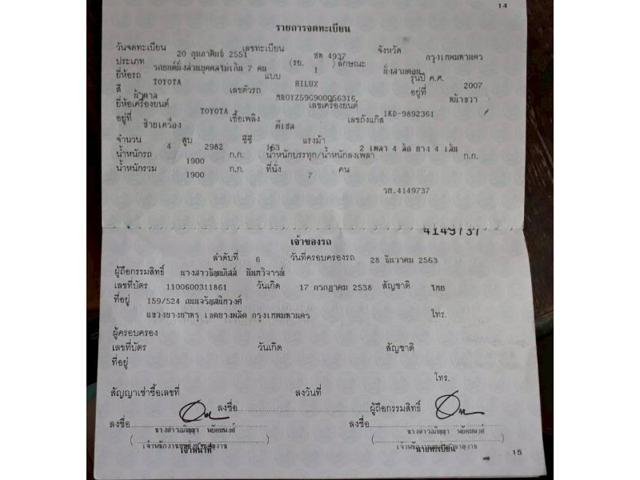 14
รายการจดทะเบียน
วันจดทะเบียน 20 กุมภาพันธ์ 2551 เลขทะเบียน 4937 จังหวัด กรุงเทพมหานคร
ประเภท รถยนต์นั่งส่วนบุคคลไม่เกิน 7 คน (รย. 1 ) ลักษณะ นั่งสามตอน
ยี่ห้อรถ TOYOTA แบบ HILUX รุ่นปี ค.ศ. 2007
สี น้ำตาล เลขตัวรถ อยู่ที่ หน้าขวา
ยี่ห้อเครื่องยนต์ TOYOTA เลขเครื่องยนต์ 1KD-9892361
อยู่ที่ ซ้ายเครื่อง เชื้อเพลิง ดีเซล เลขถังแก๊ส
จำนวน 4 สูบ 2982 ซีซี 163 แรงม้า 2 เพลา 4 ล้อ ยาง 4 เส้น
น้ำหนักรถ 1900 ก.ก. น้ำหนักบรรทุก/น้ำหนักลงเพลา ก.ก.
น้ำหนักรวม 1900 ก.ก. ที่นั่ง 7 คน
วส.4149737
4149737
เจ้าของรถ
ลำดับที่ 6 วันที่ครอบครองรถ 28 ธันวาคม 2563
ผู้ถือกรรมสิทธิ์
เลขที่บัตร 1100600311861 วันเกิด 17 กรกฎาคม 2538 สัญชาติ ไทย
ที่อยู่ 159/524 ถนนจรัญสนิทวงศ์
แขวงบางอ้อ เขตบางพลัด กรุงเทพมหานคร โทร.
ผู้ครอบครอง
เลขที่บัตร วันเกิด สัญชาติ
ที่อยู่
โทร.
สัญญาเช่าซื้อเลขที่ ลงวันที่
ลงชื่อ ผู้ถือกรรมสิทธิ์
ลงชื่อ ลงชื่อ
เจ้าหน้าที่ นายทะเบียน
15